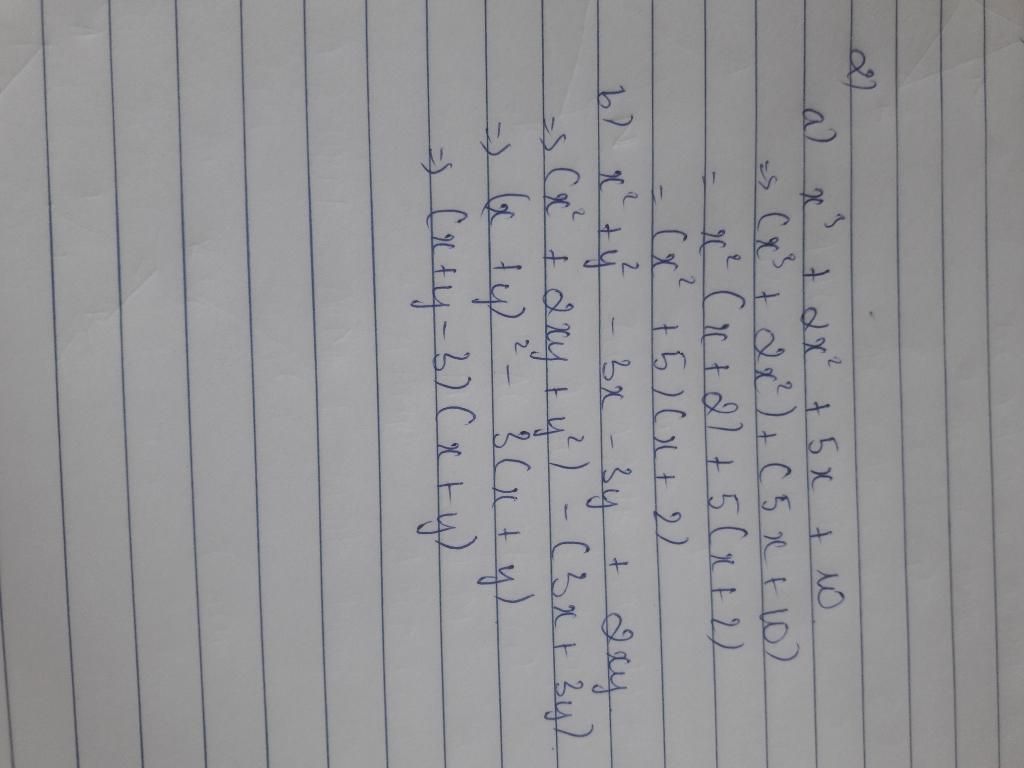 2)
a) x³ + 2x² + 5x + 10
=> (x³ + 2x²) + (5x + 10)
= x² (x + 2) + 5(x + 2)
= (x² + 5)(x + 2)
b) x² + y² - 3x - 3y + 2xy
=> (x² + 2xy + y²) - (3x + 3y)
=> (x + y)² - 3(x + y)
=> (x + y - 3)(x + y)